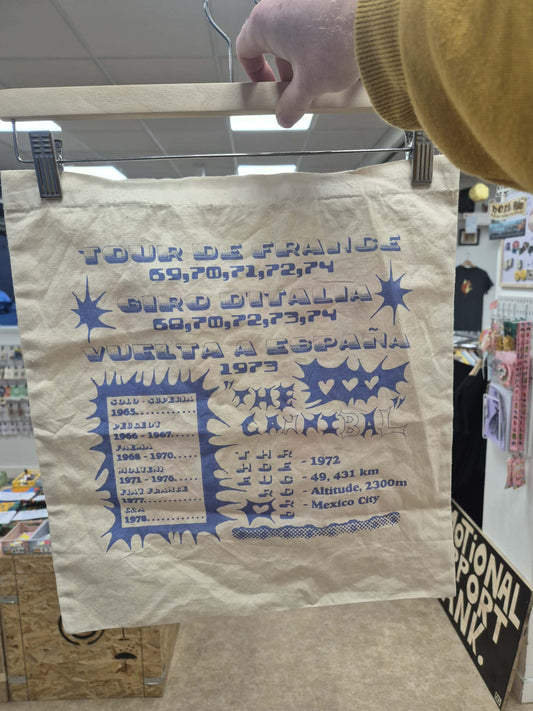 TOUR DE FRANCE
69,70,71,72,74
GIRO D'ITALIA
68,70,72,73,74
VUELTA A ESPAÑA
1973
"THE
CANNIBAL"
SOLO - SUPERIA
1965
PEUGEOT
1966 - 1967
FAEMA
1968 - 1970
MOLTENI
1971 - 1976
FIAT FRANCE
1977
C&A
1978
THE HOUR RECORD
- 1972
- 49, 431 km
- Altitude, 2300m
- Mexico City